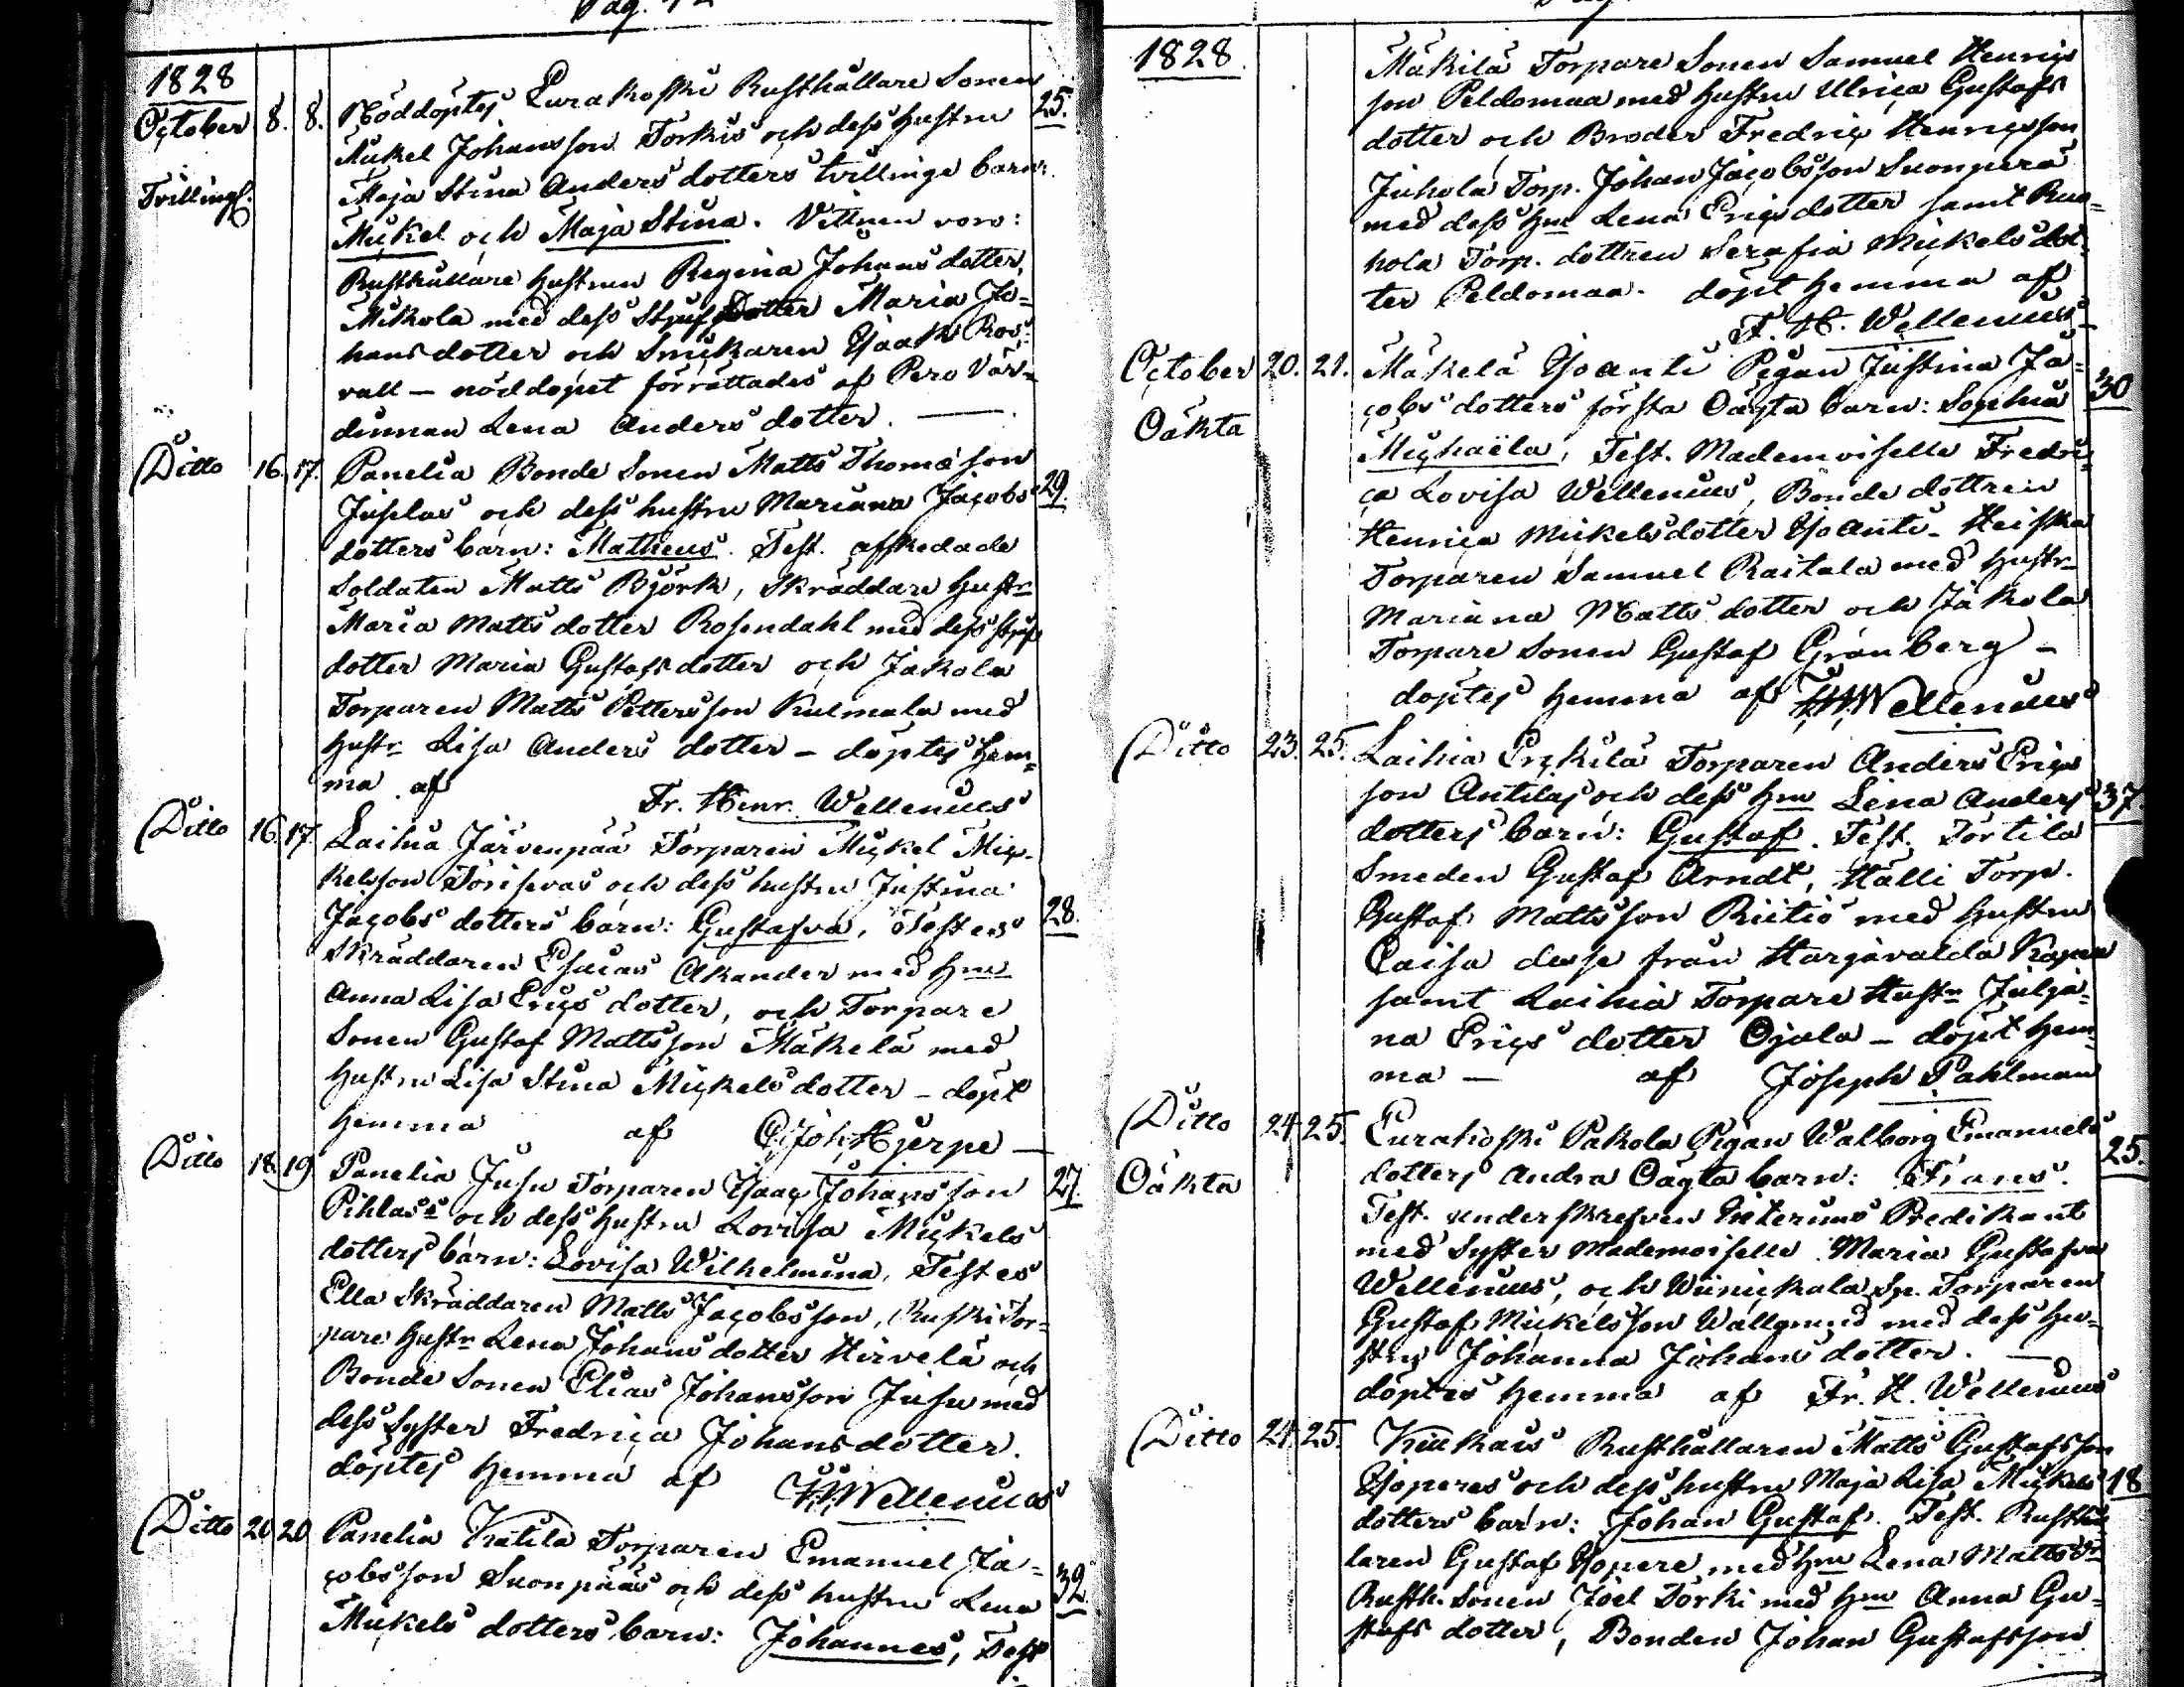 1828
October 8. 8. Nöddöptes Eurakoski Rusthållare Sonen 25.
Mickel Johansson Torkis och dess hustru
Tvillingf. Maja Stina Anders dotters tvillinge barn:
Mickel och Maja Stina. Vittnen voro:
Rusthållare hustrun Regina Johans dotter,
Mikola med dess Styuf Dotter Maria Jo=
hans dotter och Snickaren Isaak Ros=
vall — nöddopet förrättades af Pero Vär=
dinnan Lena Anders dotter. —
Ditto 16. 17. Panelia Bonde Sonen Matts Thomasson
Juselas och dess hustru Mariana Jacobs 29.
dotters barn: Matheus. Test. afskedade
Soldaten Matts Björk, Skräddare Hustr
Maria Matts dotter Rosendahl med dess styuf
dotter Maria Gustafs dotter och Jakola
Torparen Matts Pettersson Kulmala med
Hustr Lisa Anders dotter — döptes hem=
ma af Fr. Henr. Wellenius
Ditto 16. 17. Laihia Järvenpää Torparen Mickel Mic-
kelsson Torisevas och dess hustru Justina
Jacobs dotters barn: Gustafva, Testes 28.
Skräddaren Esaias Akander med Hru
Anna Lisa Erics dotter, och Torpare
Sonen Gustaf Mattsson Mäkelä med
Hustru Lisa Stina Mickels dotter — döpt
hemma af C. Joh. Hjerpe —
Ditto 18. 19 Panelia Jusu Torparen Isaac Johansson 27.
Pihlass och dess hustru Lovisa Mickels
dotters barn: Lovisa Wilhelmina, Testes
Ella Skräddaren Matts Jacobsson, Ruski Tor=
pare Hustr Lena Johans dotter Hirvelä och
Bonde Sonen Elias Johansson Jusu med
dess Syster Fredrica Johans dotter.
döptes hemma af F.H. Wellenius
Ditto 20 20 Panelia Katila Torparen Emanuel Ja=
cobsson Suonpääs och dess hustru Lena 32.
Mickels dotters barn: Johannes, Test
1828.
Mäkilä Torpare Sonen Samuel Henrics
son Peldomaa med hustru Ulrica Gustafs
dotter och Broder Fredric Henricsson
Juhola Torp. Johan Jacobsson Suonperä
med dess Hru Lena Erics dotter samt Ruo=
hola Torp. dottren Serafia Mickels dot
ter Peldomaa. döpt hemma af
F. H. Wellenius
October 20. 21. Mäkelä Isoanti Pigan Justina Ja=
Oäkta cobs dotters första Oägta barn: Sophia 30
Michaëla, Test. Mademoiselle Fredri
ca Lovisa Wellenius, Bonde dottren
Henrica Mickels dotter Isoanti. Heiska
Torparen Samuel Raitala med hustr
Mariana Matts dotter och Jakola
Torpare Sonen Gustaf Grönberg —
döptes hemma af F.H. Wellenius
Ditto 23. 25. Laihia Erckilä Torparen Anders Erics
son Antilas och dess Hru Lena Anders 37.
dotters barn: Gustaf. Test. Tortila
Smeden Gustaf Arndt, Halli Torp.
Gustaf Mattsson Riitiö med hustru
Caisa desse från Harjavalda Kapen
samt Laihia Torpare Hustr Julja=
na Erics dotter Ojala — döpt hem
ma — af Joseph Pahlman
Ditto 24 25. Eurakoski Pakola Pigan Walborg Emanuels
Oäkta dotters andra Oägta barn: Frans. 25.
Test. underskrefven Interims Predikant
med Syster Mademoiselle Maria Gustafva
Wellenius, och Winickala Sp. Torparen
Gustaf Mickelsson Wallgrund med dess hu=
stru Johanna Johans dotter. —
döptes hemma af Fr. H. Wellenius
Ditto 24. 25. Kiukais Rusthållaren Matts Gustafsson
Isoperes och dess hustru Maja Lisa Mickels 18
dotters barn: Johan Gustaf. Test. Rusthål
laren Gustaf Isopere med Hru Lena Matts dr
Rusth. Sonen Joel Torki med Hru Anna Gu=
stafs dotter, Bonden Johan Gustafsson